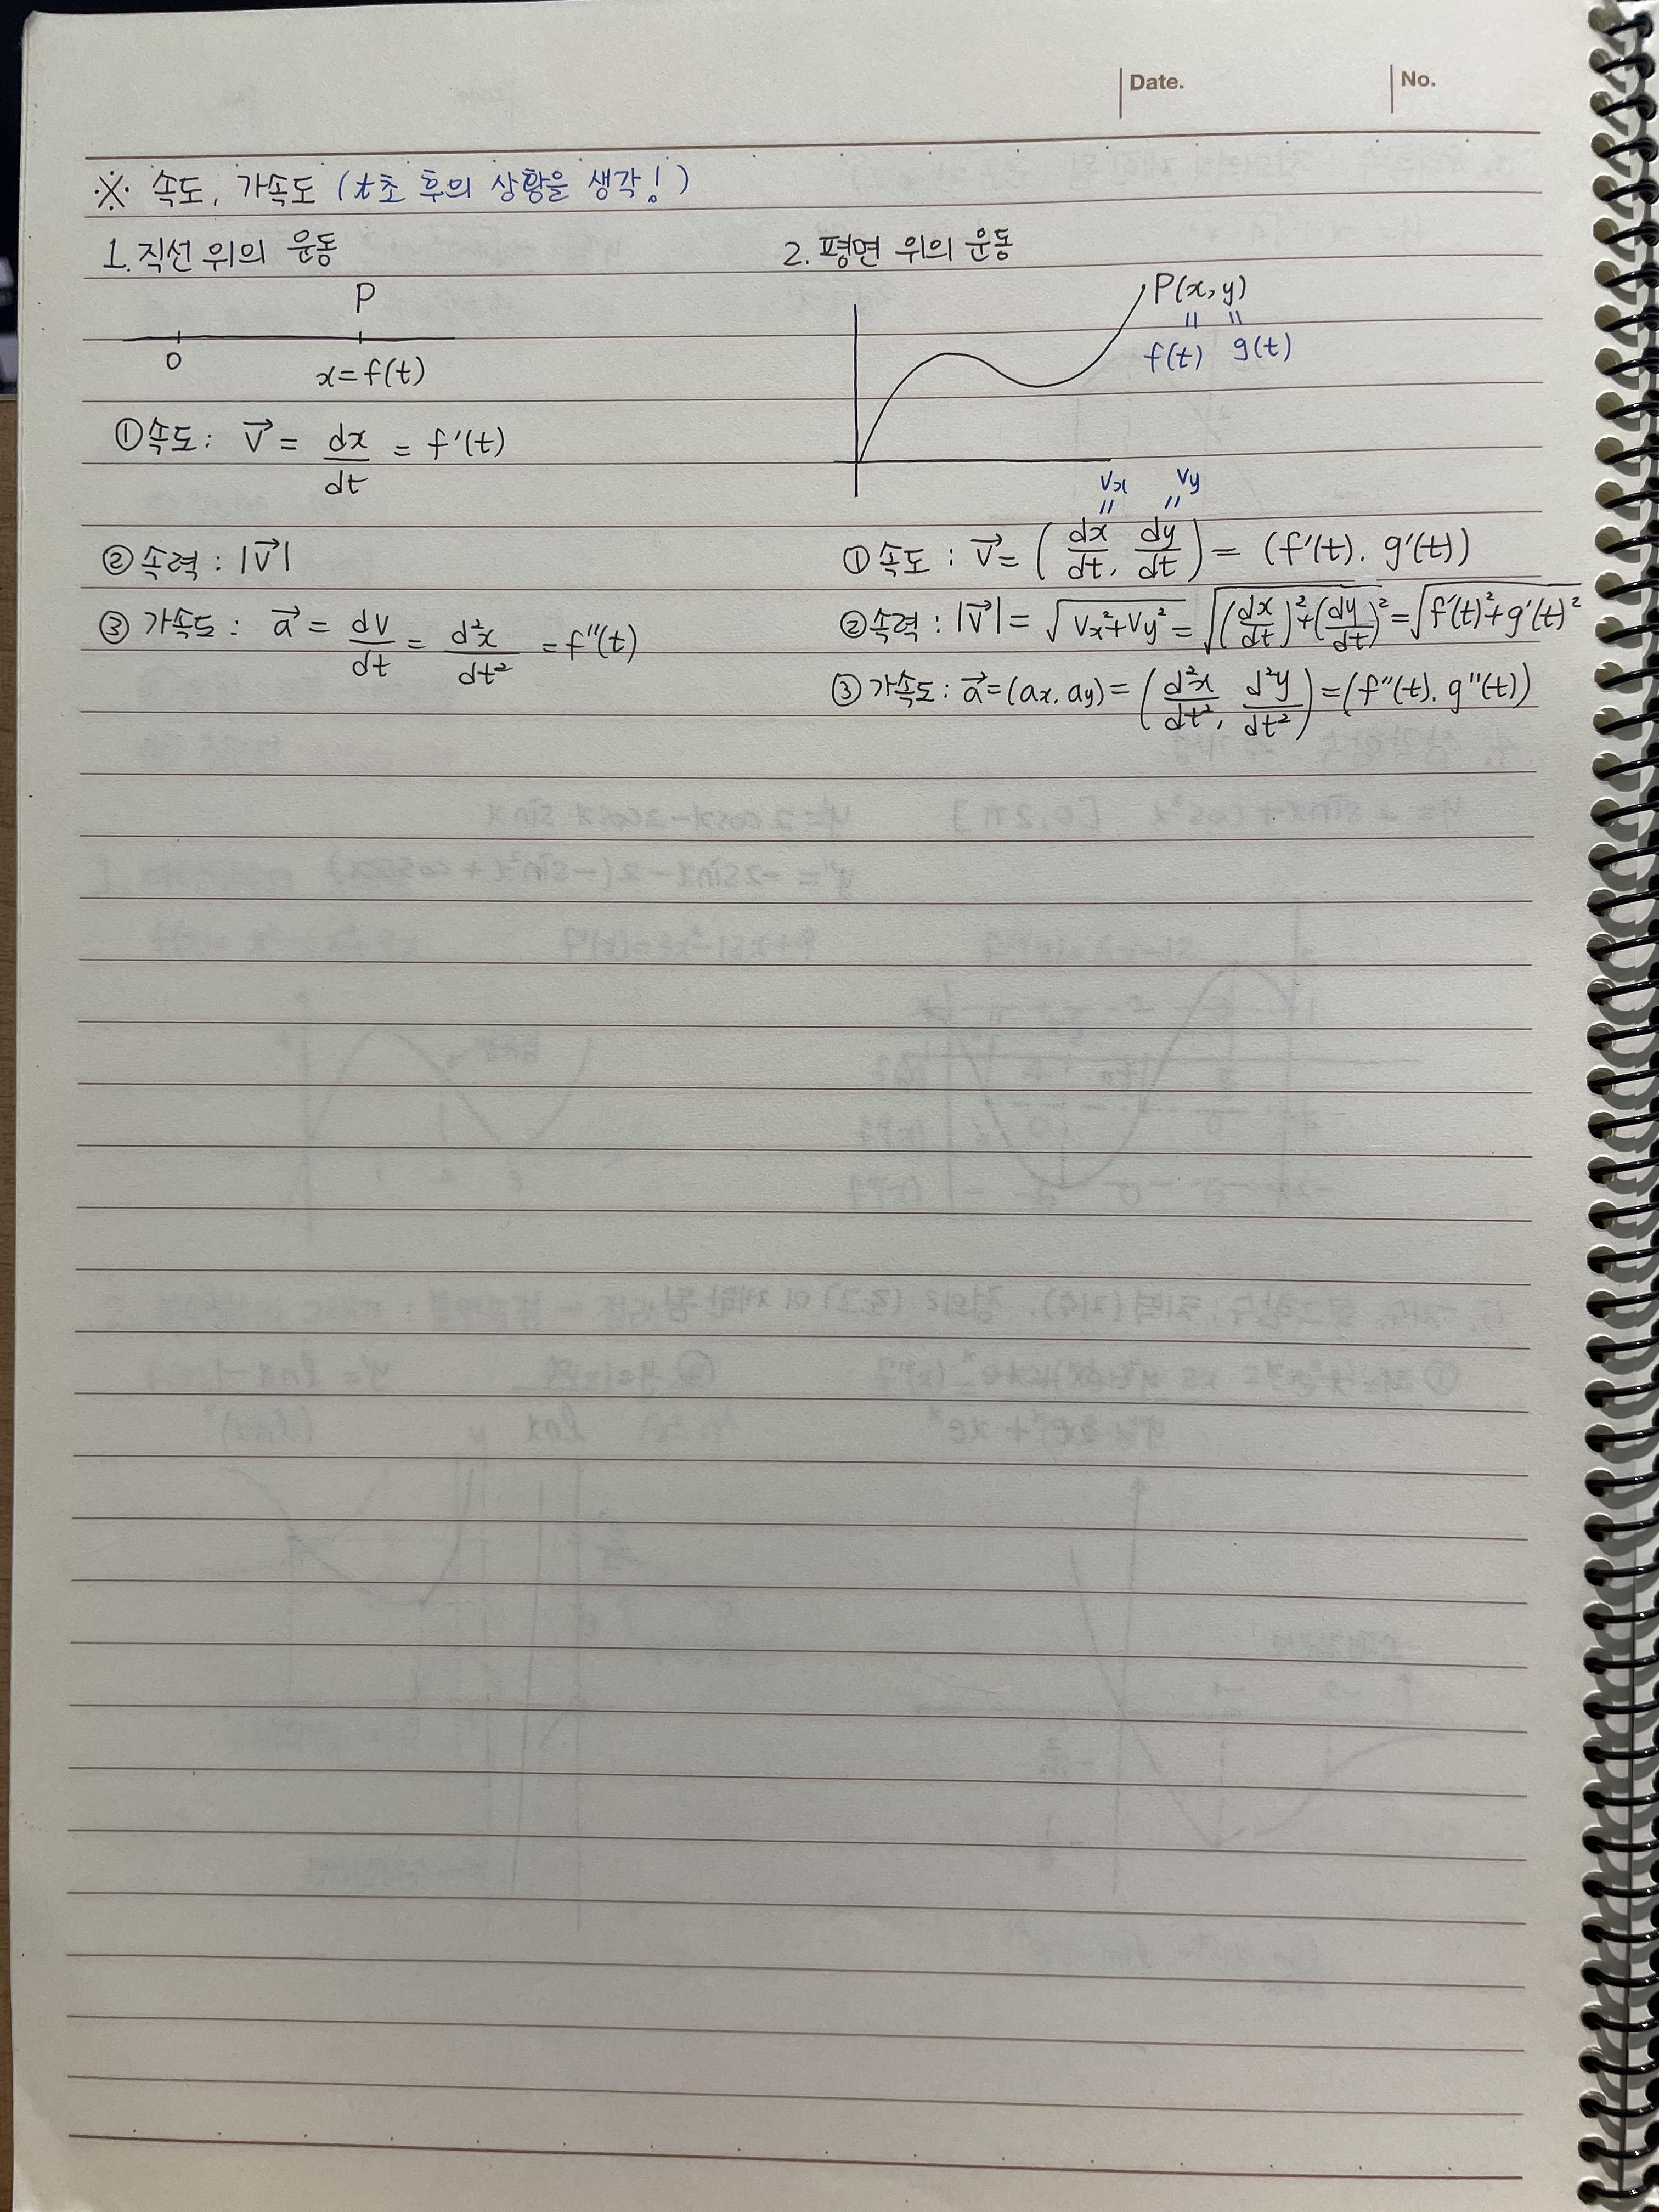 Date. No.
※ 속도, 가속도 (t초 후의 상황을 생각!)
1. 직선 위의 운동
P
0
x=f(t)
① 속도: v⃗ = dx/dt = f'(t)
② 속력: |v⃗|
③ 가속도: a⃗ = dv/dt = d²x/dt² = f''(t)
2. 평면 위의 운동
P(x, y)
= =
f(t) g(t)
Vx Vy
= =
① 속도: v⃗ = (dx/dt, dy/dt) = (f'(t). g'(t))
② 속력: |v⃗| = √(Vx²+Vy²) = √((dx/dt)²+(dy/dt)²) = √(f'(t)²+g'(t)²)
③ 가속도: a⃗ = (ax. ay) = (d²x/dt², d²y/dt²) = (f''(t). g''(t))